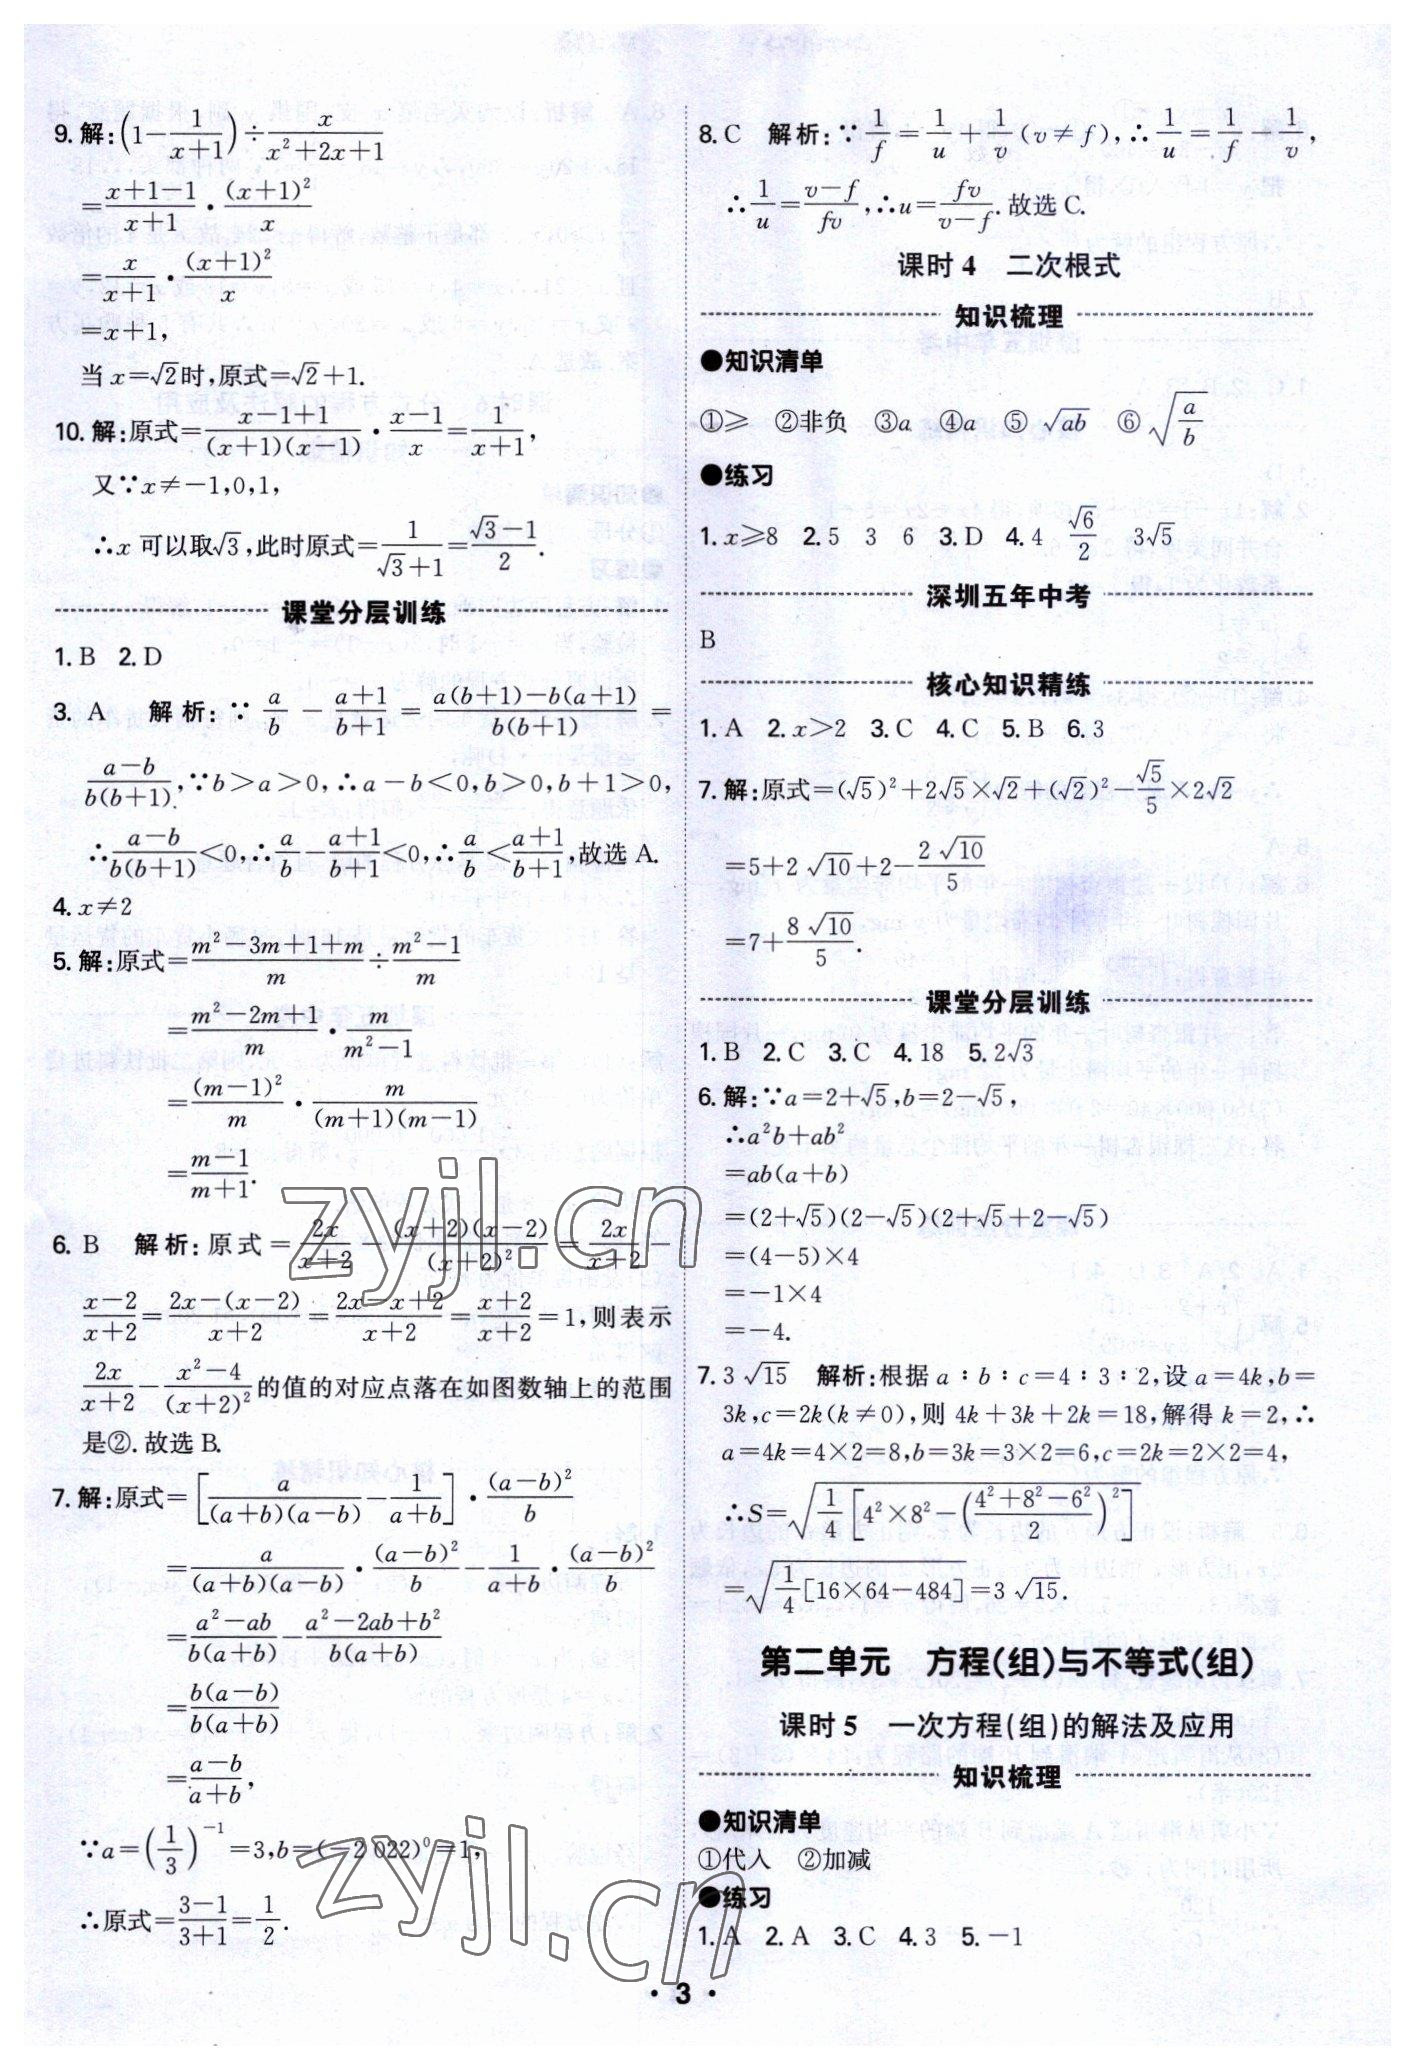 9. 解:(1-1/(x+1))÷x/(x²+2x+1)
=(x+1-1)/(x+1)·(x+1)²/x
=x/(x+1)·(x+1)²/x
=x+1,
当 x=√2时,原式=√2+1.
10. 解:原式=(x-1+1)/((x+1)(x-1))·(x-1)/x=1/(x+1),
又∵x≠-1,0,1,
∴x 可以取√3,此时原式=1/(√3+1)=(√3-1)/2.
课堂分层训练
1. B 2. D
3. A 解析:∵a/b-(a+1)/(b+1)=(a(b+1)-b(a+1))/(b(b+1))=
(a-b)/(b(b+1)),∵b>a>0,∴a-b<0,b>0,b+1>0,
∴(a-b)/(b(b+1))<0,∴a/b-(a+1)/(b+1)<0,∴a/b<(a+1)/(b+1),故选 A.
4. x≠2
5. 解:原式=(m²-3m+1+m)/m÷(m²-1)/m
=(m²-2m+1)/m·m/(m²-1)
=(m-1)²/m·m/((m+1)(m-1))
=(m-1)/(m+1).
6. B 解析:原式=2x/(x+2)-(x+2)(x-2)/(x+2)²=2x/(x+2)-
(x-2)/(x+2)=(2x-(x-2))/(x+2)=(2x-x+2)/(x+2)=(x+2)/(x+2)=1,则表示
2x/(x+2)-(x²-4)/(x+2)²的值的对应点落在如图数轴上的范围
是②.故选 B.
7. 解:原式=[a/((a+b)(a-b))-1/(a+b)]·(a-b)²/b
=a/((a+b)(a-b))·(a-b)²/b-1/(a+b)·(a-b)²/b
=(a²-ab)/(b(a+b))-(a²-2ab+b²)/(b(a+b))
=b(a-b)/(b(a+b))
=(a-b)/(a+b),
∵a=(1/3)⁻¹=3,b=(-2 022)⁰=1,
∴原式=(3-1)/(3+1)=1/2.
8. C 解析:∵1/f=1/u+1/v(v≠f),∴1/u=1/f-1/v,
∴1/u=(v-f)/fv,∴u=fv/(v-f).故选 C.
课时 4 二次根式
知识梳理
●知识清单
①≥ ②非负 ③a ④a ⑤√ab ⑥√(a/b)
●练习
1. x≥8 2. 5 3 6 3. D 4. 4 √6/2 3√5
深圳五年中考
B
核心知识精练
1. A 2. x>2 3. C 4. C 5. B 6. 3
7. 解:原式=(√5)²+2√5×√2+(√2)²-√5/5×2√2
=5+2√10+2-2√10/5
=7+8√10/5.
课堂分层训练
1. B 2. C 3. C 4. 18 5. 2√3
6. 解:∵a=2+√5,b=2-√5,
∴a²b+ab²
=ab(a+b)
=(2+√5)(2-√5)(2+√5+2-√5)
=(4-5)×4
=-1×4
=-4.
7. 3√15 解析:根据 a∶b∶c=4∶3∶2,设 a=4k,b=
3k,c=2k(k≠0),则 4k+3k+2k=18,解得 k=2,∴
a=4k=4×2=8,b=3k=3×2=6,c=2k=2×2=4,
∴S=√(1/4[4²×8²-((4²+8²-6²)/2)²])
=√(1/4[16×64-484])=3√15.
第二单元 方程(组)与不等式(组)
课时 5 一次方程(组)的解法及应用
知识梳理
●知识清单
①代入 ②加减
●练习
1. A 2. A 3. C 4. 3 5. -1
zyjl.cn
zyjl.cn
·3·